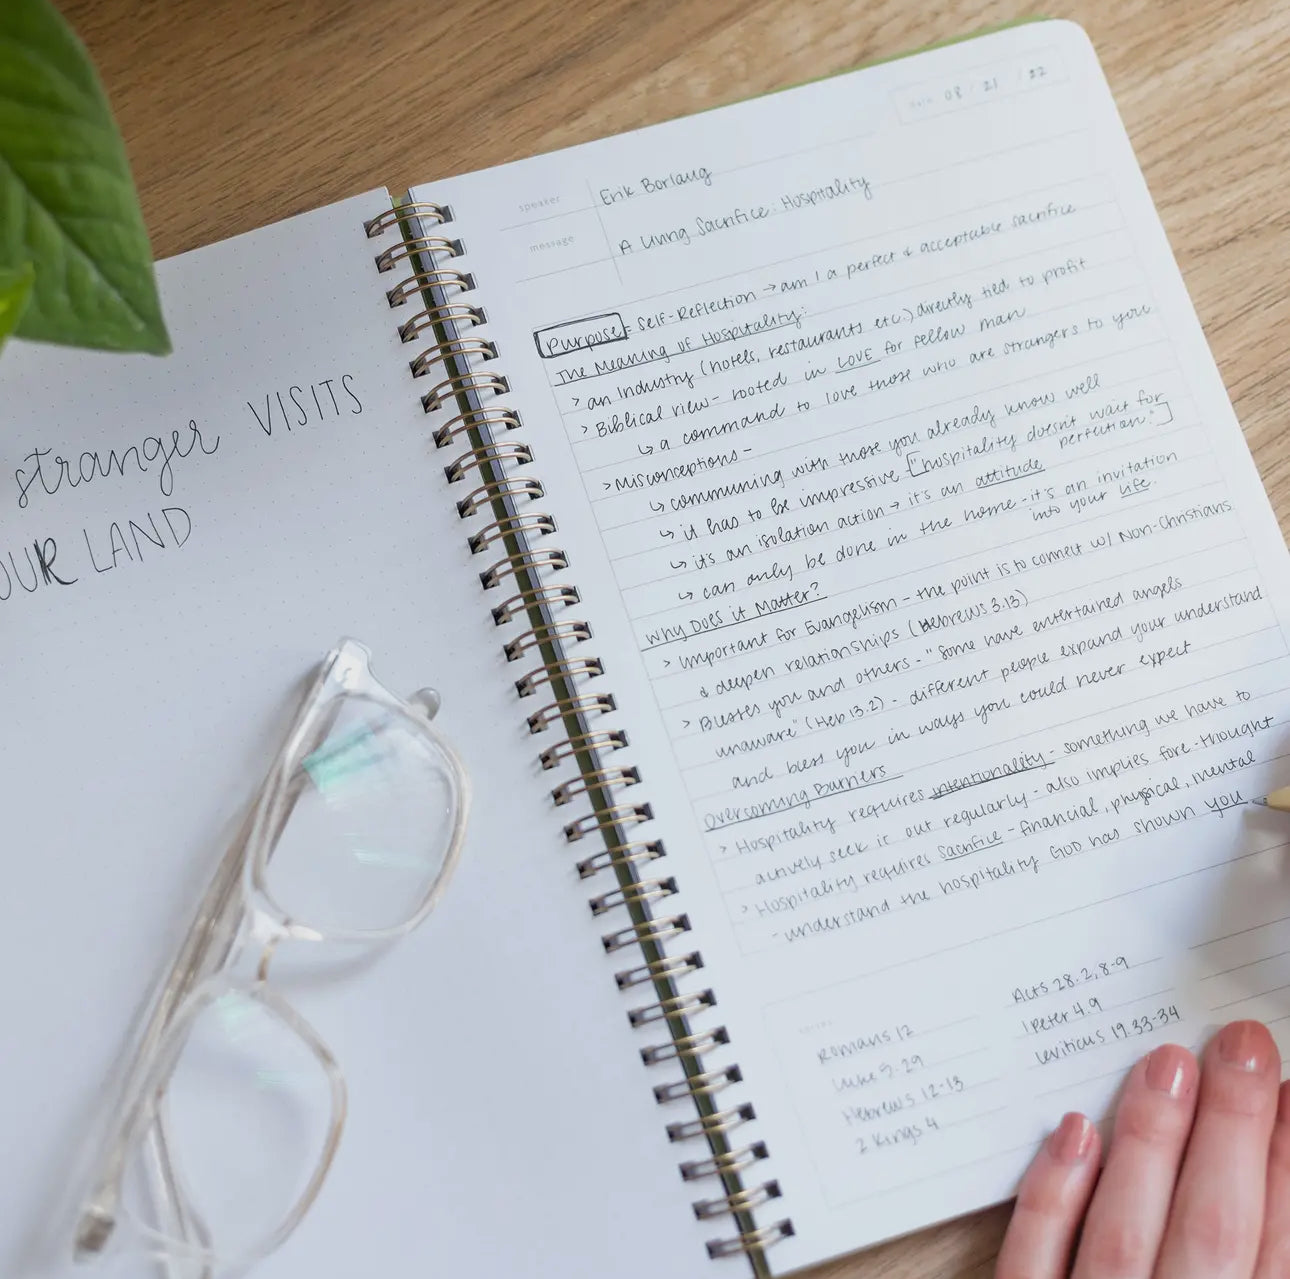 stranger VISITS
OUR LAND
Date 08 / 21 / 22
speaker Erik Borlaug
message A Living Sacrifice: Hospitality
Purpose = Self-Reflection → am I a perfect & acceptable sacrifice
The Meaning of Hospitality:
> an Industry (hotels, restaurants etc.) directly tied to profit
> Biblical view - rooted in LOVE for fellow man
↳ a command to love those who are strangers to you
> Misconceptions -
↳ communing with those you already know well
↳ it has to be impressive - ["hospitality doesn't wait for perfection."]
↳ it's an isolation action → it's an attitude
↳ can only be done in the home - it's an invitation into your life.
Why Does it Matter?
> important for Evangelism - the point is to connect w/ Non-Christians
& deepen relationships (Hebrews 3.13)
> Blesses you and others - "some have entertained angels
unaware" (Heb 13.2) - different people expand your understand
and bless you in ways you could never expect
Overcoming Barriers
> Hospitality requires intentionality - something we have to
actively seek it out regularly - also implies fore-thought
> Hospitality requires Sacrifice - financial, physical, mental
- understand the hospitality GOD has shown you
Romans 12
Luke 5.29
Hebrews 12-13
2 Kings 4
Acts 28.2, 8-9
1 Peter 4.9
Leviticus 19.33-34